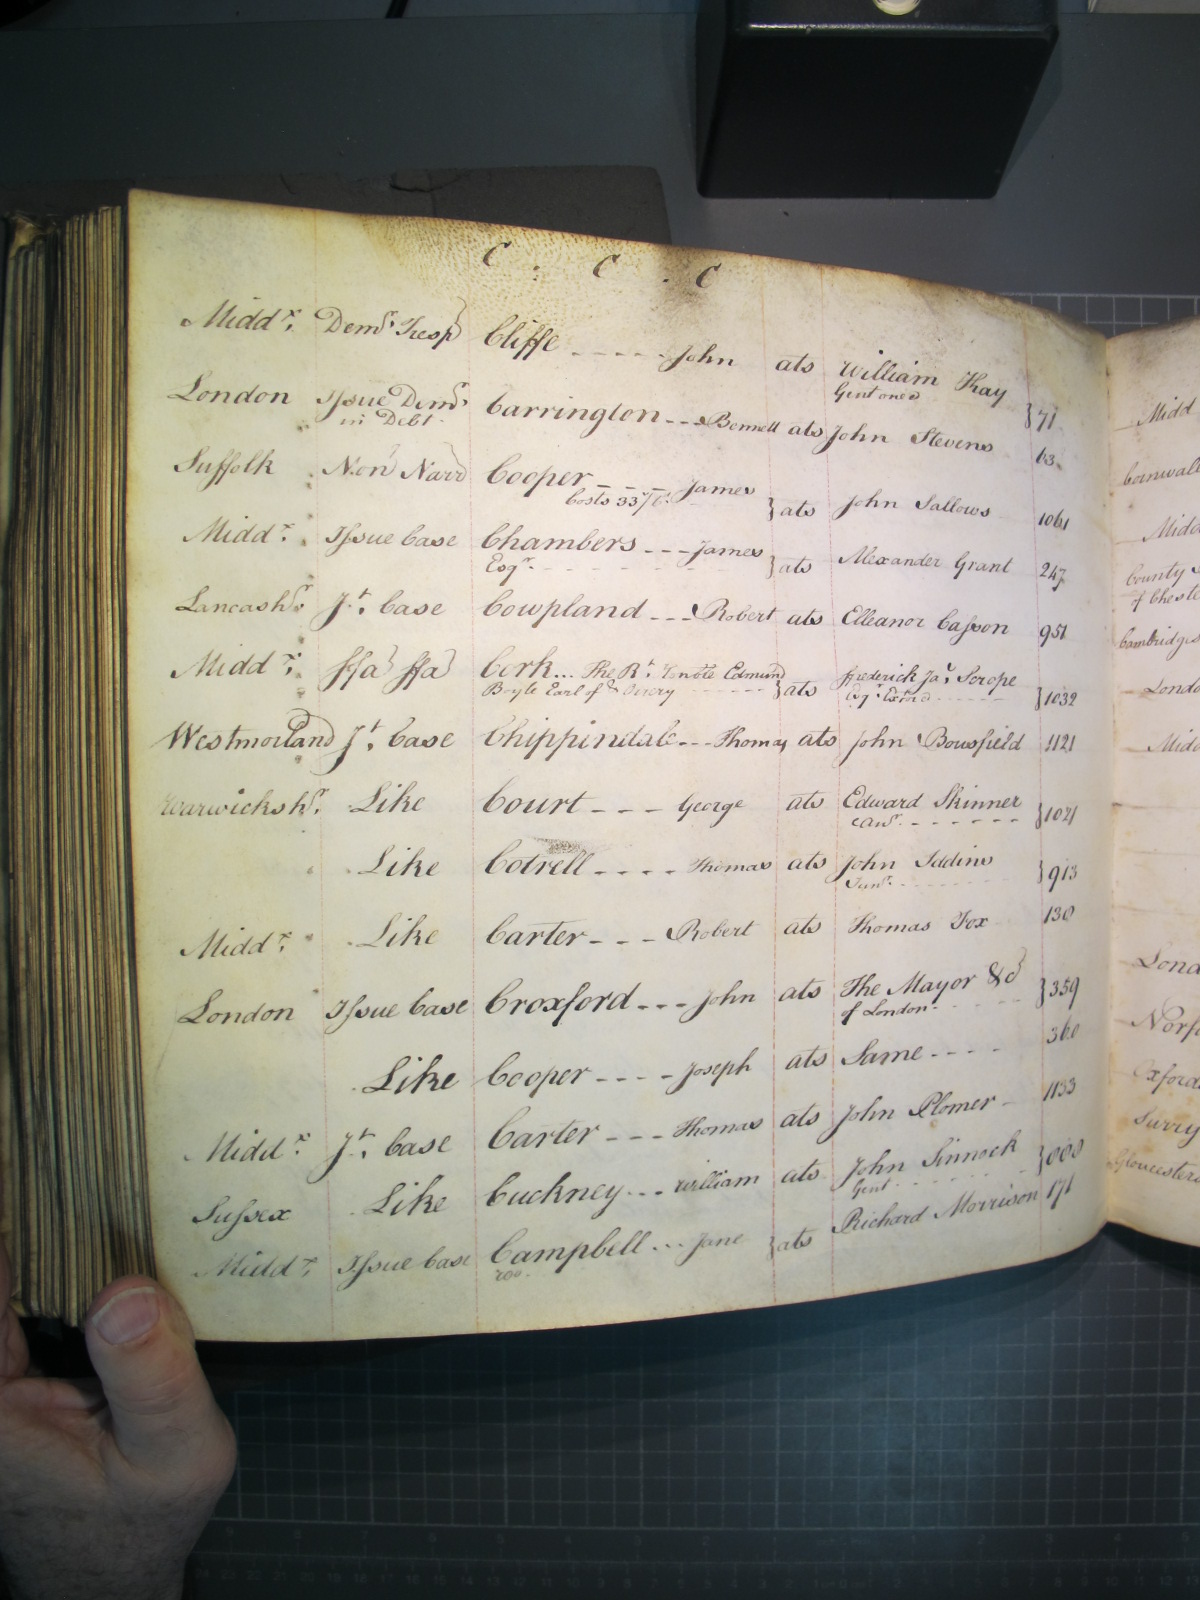 C : C . C
Middx. Demr Tresp Cliffe ---- John ats William Kay
Gent one &c } 71
London Issue Demr Carrington --- Bennett ats John Stevens 63
in Debt
Suffolk Non Narr Cooper ---- James } ats John Sallows 1061
Costs 33
Middx. Issue Case Chambers --- James } ats Alexander Grant 247
Esqr.
Lancashr. Jt. Case Cowpland --- Robert ats Elleanor Casson 951
Middx. ffa ffa Cork... The Rt. Honble Edmund } ats Frederick Jas. Scrope } 1032
Boyle Earl of & Orrery Esqr. Exor &c
Westmorland Jt. Case Chippindale --- Thomas ats John Bowsfield 1121
Warwickshr. Like Court --- George ats Edward Skinner } 1021
Like Cotrell ---- Thomas ats John Iddins } 913
Junr.
Middx. Like Carter --- Robert ats Thomas Fox 130
London Issue Case Croxford --- John ats The Mayor &c } 359
of London
Like Cooper ---- Joseph ats Same ---- 360
Middx. Jt. Case Carter --- Thomas ats John Plomer 1133
Sussex Like Cuckney --- William ats John Sinnock
Gent
Middx. Issue Case Campbell ... Jane } ats Richard Morrison 171
Midd
Cornwall
Midd
County
of Cheste
Cambridges
London
Midd
Lond
Norf
Oxford
Surry
Gloucesters